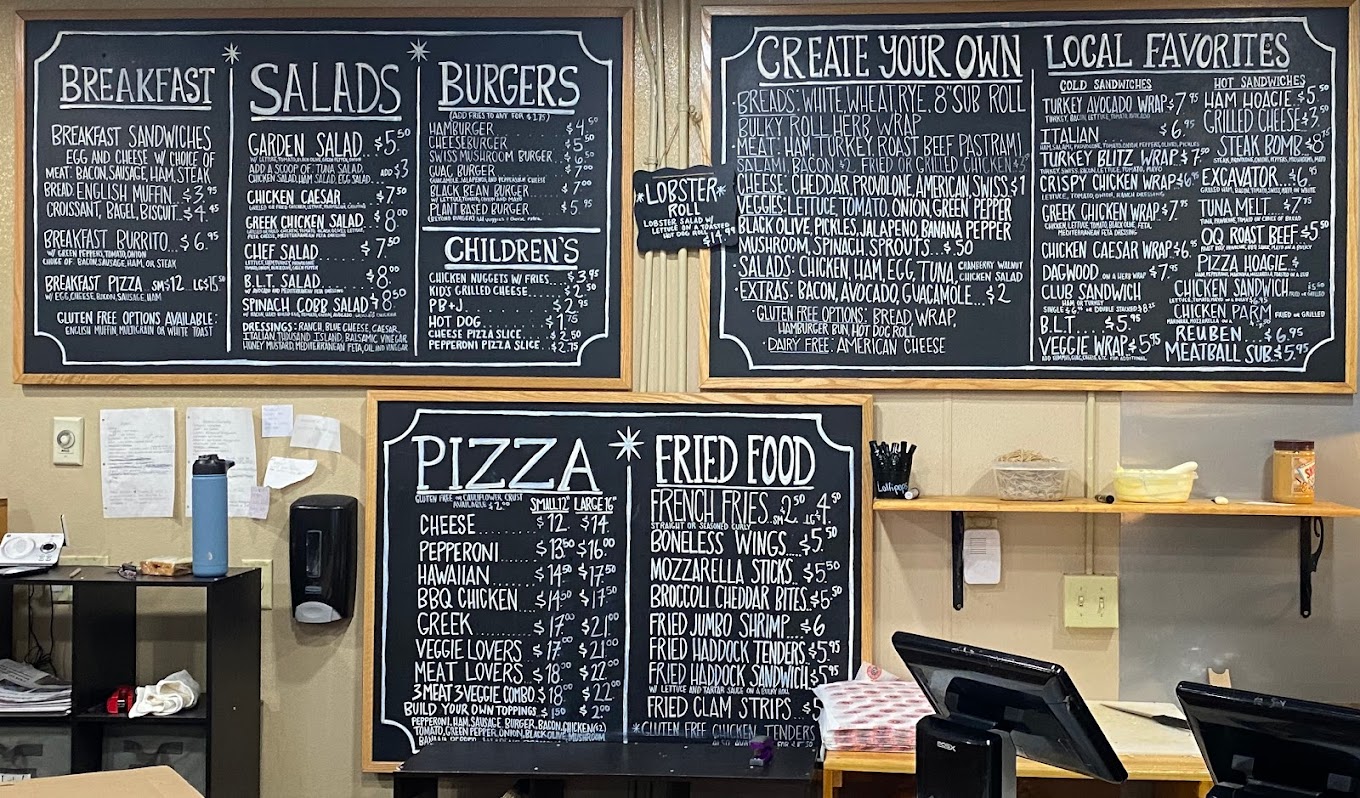 BREAKFAST
BREAKFAST SANDWICHES
EGG AND CHEESE W/ CHOICE OF
MEAT: BACON, SAUSAGE, HAM, STEAK
BREAD: ENGLISH MUFFIN $3.95
CROISSANT, BAGEL, BISCUIT..$4.45
BREAKFAST BURRITO...$6.95
W/ GREEN PEPPERS, TOMATO, ONION
CHOICE OF BACON, SAUSAGE, HAM, OR STEAK
BREAKFAST PIZZA SM $12. LG $15.50
W/ EGG, CHEESE, BACON, SAUSAGE, HAM
GLUTEN FREE OPTIONS AVAILABLE:
ENGLISH MUFFIN, MULTIGRAIN OR WHITE TOAST
SALADS
GARDEN SALAD...$5.50
W/ LETTUCE, TOMATO, BLACK OLIVE, GREEN PEPPER, ONION
ADD A SCOOP OF: TUNA SALAD,
CHICKEN SALAD, HAM SALAD, EGG SALAD... ADD $3
CHICKEN CAESAR...$7.50
GREEK CHICKEN SALAD..$8.00
FETA CHEESE, MEDITERRANEAN FETA DRESSING
CHEF SALAD...$7.50
B.L.T. SALAD...$8.00
SPINACH COBB SALAD $8.50
DRESSINGS: RANCH, BLUE CHEESE, CAESAR,
ITALIAN, THOUSAND ISLAND, BALSAMIC VINEGAR,
HONEY MUSTARD, MEDITERRANEAN FETA, OIL AND VINEGAR
BURGERS
(ADD FRIES TO ANY FOR $1.75)
HAMBURGER $4.50
CHEESEBURGER $5.50
SWISS MUSHROOM BURGER..$6.50
GUAC BURGER $7.00
GUACAMOLE, JALAPENO, AND PEPPERJACK CHEESE
BLACK BEAN BURGER $7.00
W/ LETTUCE, TOMATO, ONION AND MAYO
PLANT BASED BURGER $5.95
CHILDREN'S
CHICKEN NUGGETS W/ FRIES...$3.95
KIDS GRILLED CHEESE...$2.50
PB+J...$2.95
HOT DOG...$1.75
CHEESE PIZZA SLICE...$2.50
PEPPERONI PIZZA SLICE...$2.75
LOBSTER
ROLL
LOBSTER SALAD W/
LETTUCE ON A TOASTED
HOT DOG ROLL
$14.99
CREATE YOUR OWN
·BREADS: WHITE, WHEAT, RYE, 8" SUB ROLL
BULKY ROLL, HERB WRAP
·MEAT: HAM, TURKEY, ROAST BEEF, PASTRAMI
SALAMI, BACON, $2 FRIED OR GRILLED CHICKEN
·CHEESE: CHEDDAR, PROVOLONE, AMERICAN, SWISS $1
·VEGGIES: LETTUCE, TOMATO, ONION, GREEN PEPPER
BLACK OLIVE, PICKLES, JALAPENO, BANANA PEPPER
MUSHROOM, SPINACH, SPROUTS...$.50
·SALADS: CHICKEN, HAM, EGG, TUNA, CRANBERRY WALNUT CHICKEN SALAD
·EXTRAS: BACON, AVOCADO, GUACAMOLE...$2
·GLUTEN FREE OPTIONS: BREAD, WRAP,
HAMBURGER BUN, HOT DOG ROLL
·DAIRY FREE: AMERICAN CHEESE
LOCAL FAVORITES
COLD SANDWICHES
TURKEY AVOCADO WRAP $7.95
TURKEY, BACON, LETTUCE, TOMATO, AVOCADO
ITALIAN $6.95
HAM, SALAMI, PROVOLONE, TOMATO, ONION, PEPPERS, OLIVES, PICKLES
TURKEY BLITZ WRAP $7.50
TURKEY, SWISS, BACON, LETTUCE, TOMATO, MAYO
CRISPY CHICKEN WRAP $6.95
LETTUCE, TOMATO, ONION, RANCH DRESSING
GREEK CHICKEN WRAP $7.95
LETTUCE, TOMATO, BLACK OLIVE, FETA,
MEDITERRANEAN FETA DRESSING
CHICKEN CAESAR WRAP $6.95
DAGWOOD ON A HERB WRAP $7.95
CLUB SANDWICH
HAM OR TURKEY
B.L.T...$5.95
VEGGIE WRAP $5.95
HOT SANDWICHES
HAM HOAGIE $5.50
GRILLED CHEESE $3.50
STEAK BOMB $8
STEAK, PROVOLONE, ONION, PEPPERS, MUSHROOMS, MAYO
EXCAVATOR...$6.95
GRILLED HAM, BACON, TOMATO, SWISS, WHITE OR WHEAT
TUNA MELT...$7.75
TUNA, PROVOLONE, TOMATO ON CHOICE OF BREAD
OQ ROAST BEEF $5.50
PIZZA HOAGIE
CHICKEN SANDWICH FRIED OR GRILLED
CHICKEN PARM FRIED OR GRILLED
REUBEN...$6.95
MEATBALL SUB $5.95
PIZZA
GLUTEN FREE OR CAULIFLOWER CRUST
AVAILABLE $2.00
SMALL 12" LARGE 16"
CHEESE $12. $14.
PEPPERONI $13.50 $16.00
HAWAIIAN $14.50 $17.50
BBQ CHICKEN $14.50 $17.50
GREEK $17.00 $21.00
VEGGIE LOVERS $17.00 $21.00
MEAT LOVERS $18.00 $22.00
3 MEAT 3 VEGGIE COMBO $18.00 $22.00
BUILD YOUR OWN TOPPINGS $1.50 $2.00
PEPPERONI, HAM, SAUSAGE, BURGER, BACON, CHICKEN (+2)
TOMATO, GREEN PEPPER, ONION, BLACK OLIVE, MUSHROOM
FRIED FOOD
FRENCH FRIES SM $2.50 LG $4.50
STRAIGHT OR SEASONED CURLY
BONELESS WINGS...$5.50
MOZZARELLA STICKS..$5.50
BROCCOLI CHEDDAR BITES..$5.50
FRIED JUMBO SHRIMP...$6
FRIED HADDOCK TENDERS $5.95
FRIED HADDOCK SANDWICH $5.95
W/ LETTUCE AND TARTAR SAUCE ON A BULKY ROLL
FRIED CLAM STRIPS
*GLUTEN FREE CHICKEN TENDERS
Lollipops